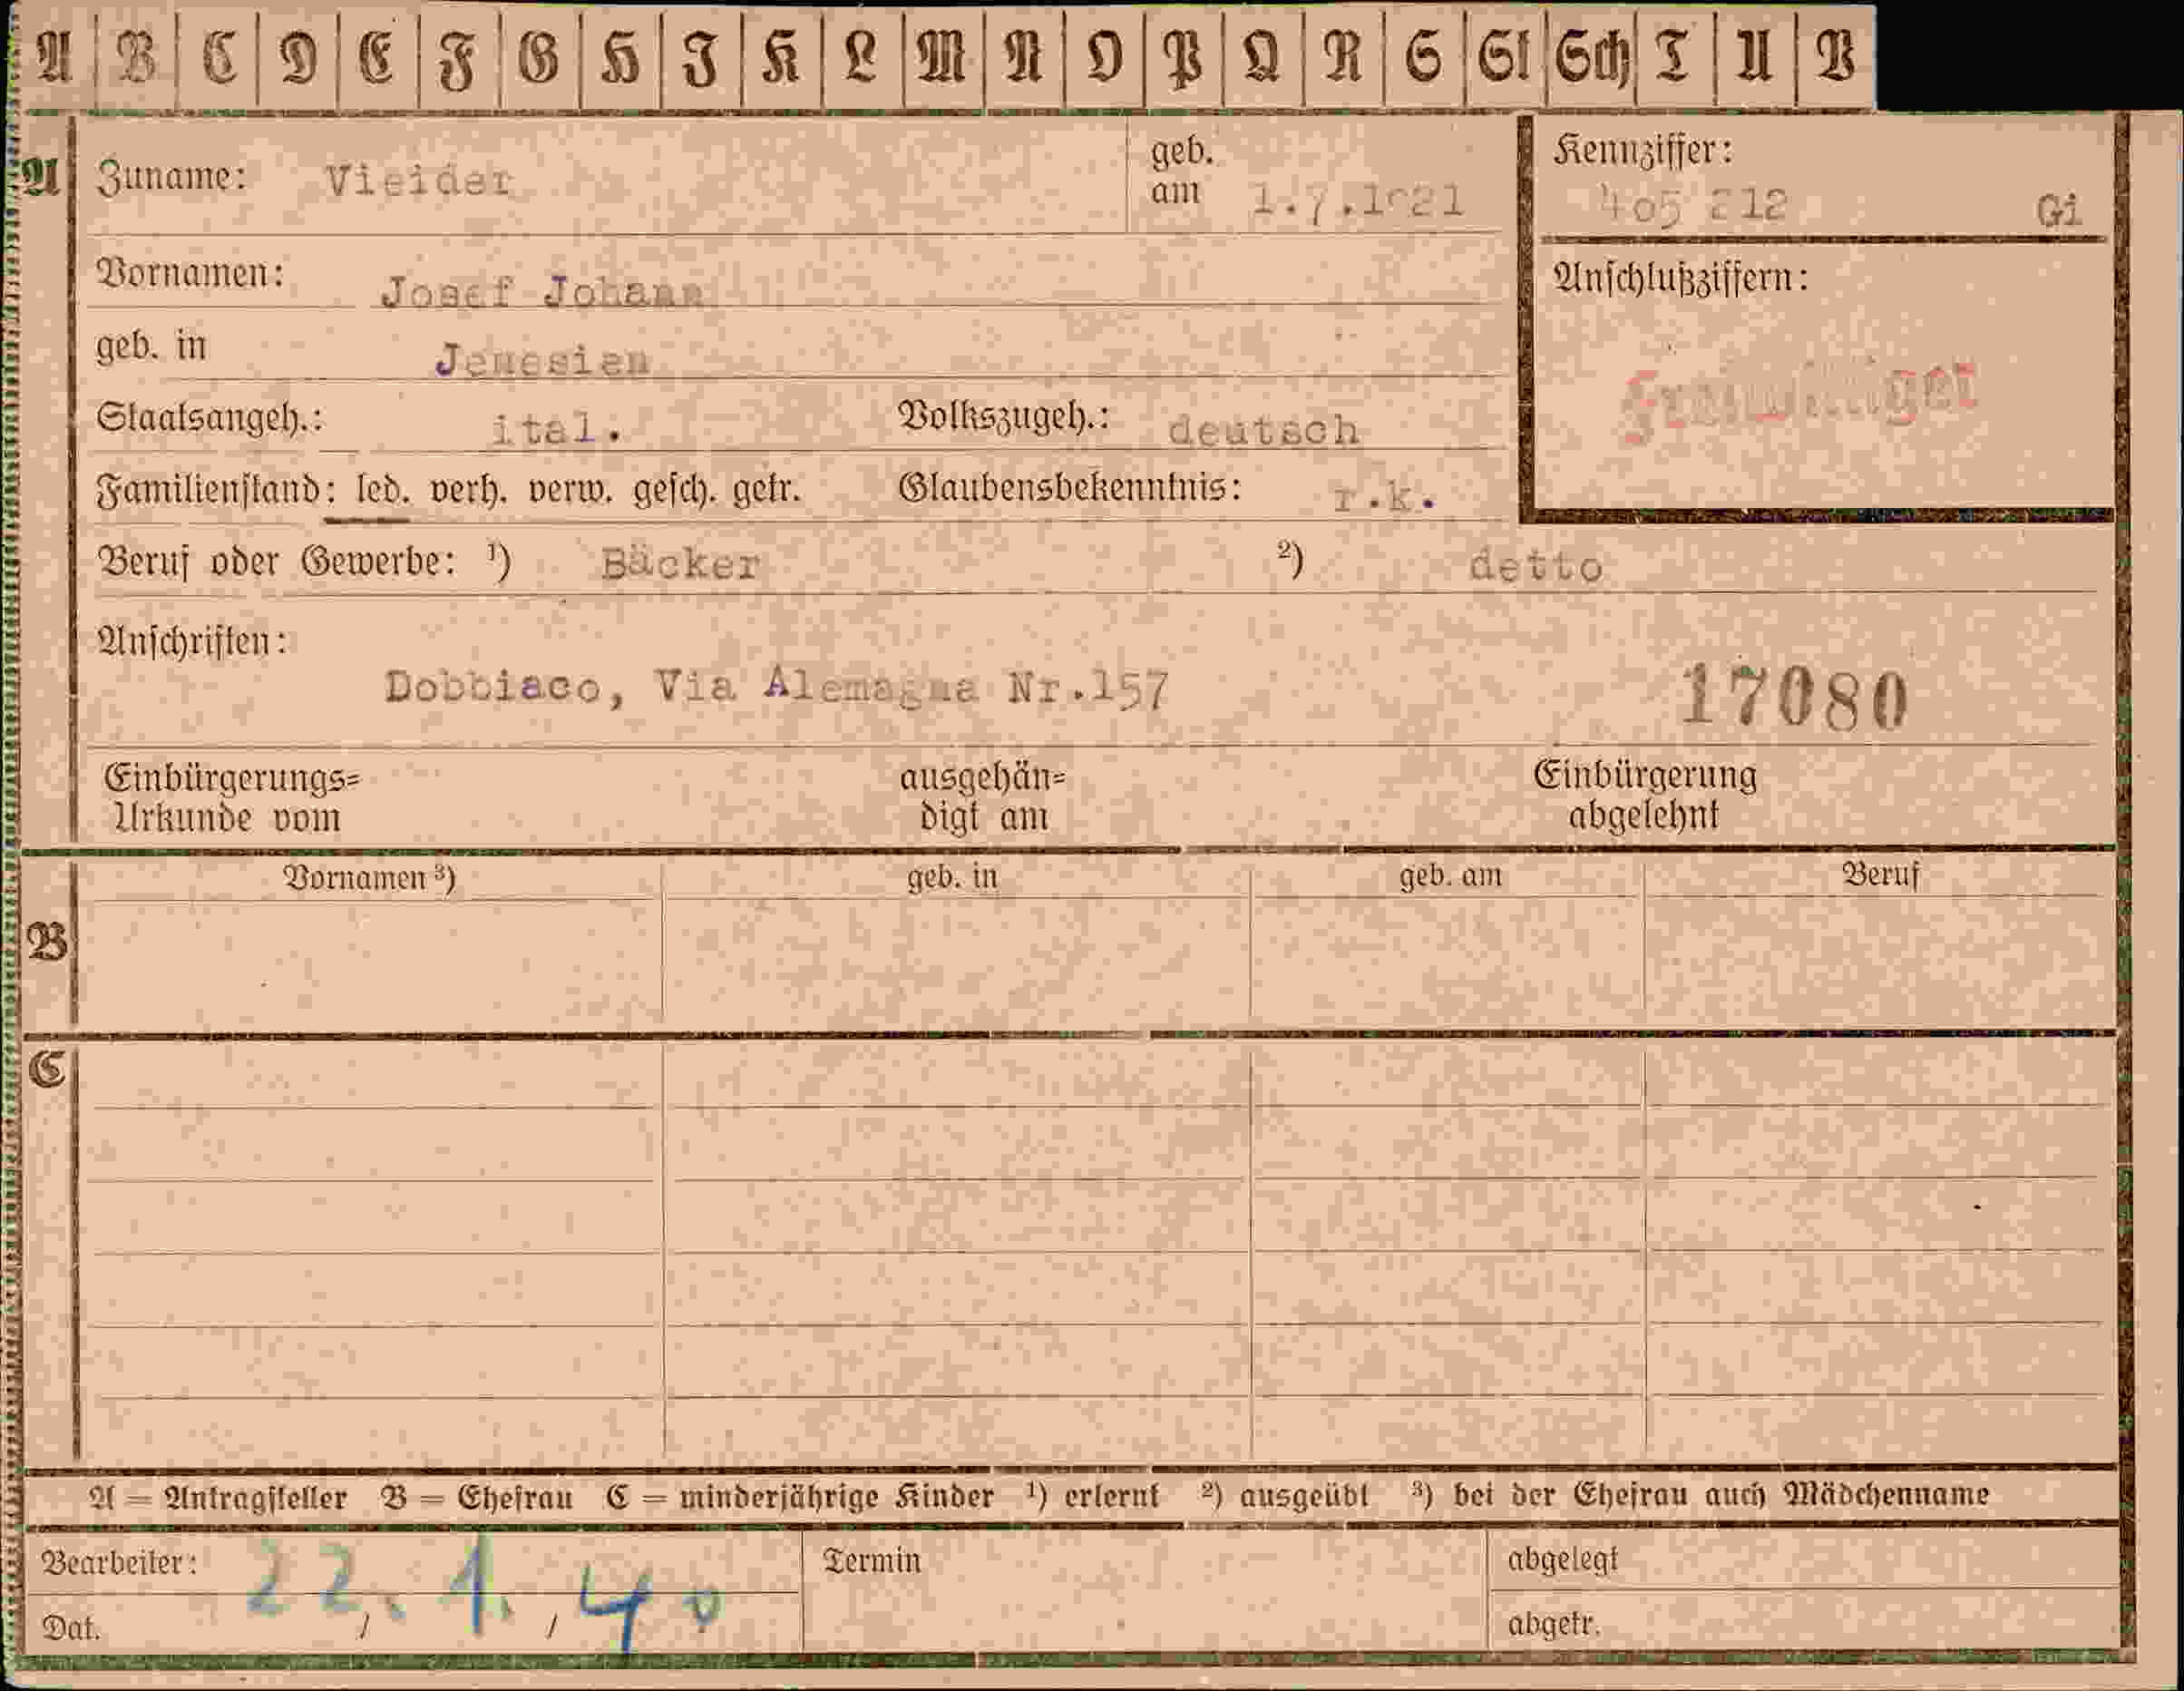 A B C D E F G H I K L M N O P Q R S St Sch T U V
A Zuname: Vieider geb. am 1.7.1921 Kennziffer: 405 212 Gi
Vornamen: Josef Johann Anschlußziffern:
geb. in Jenesien Freiwilliger
Staatsangeh.: ital. Volkszugeh.: deutsch
Familienstand: led. verh. verw. gesch. getr. Glaubensbekenntnis: r.k.
Beruf oder Gewerbe: 1) Bäcker 2) detto
Anschriften:
Dobbiaco, Via Alemagna Nr.157 17080
Einbürgerungs= ausgehän= Einbürgerung
Urkunde vom digt am abgelehnt
Vornamen 3) geb. in geb. am Beruf
B
C
A = Antragsteller B = Ehefrau C = minderjährige Kinder 1) erlernt 2) ausgeübt 3) bei der Ehefrau auch Mädchenname
Bearbeiter: 22. 1. 40 Termin abgelegt
Dat. / / abgetr.